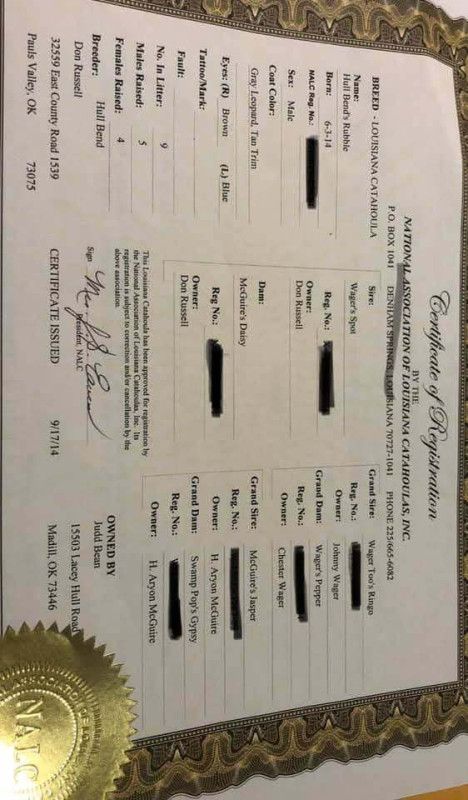 Certificate of Registration
BY THE
NATIONAL ASSOCIATION OF LOUISIANA CATAHOULAS, INC.
P.O. BOX 1041 DENHAM SPRINGS, LOUISIANA 70727-1041 PHONE 225/665-6082
BREED - LOUISIANA CATAHOULA
Name:
Hull Bend's Rubble
Born: 6-3-14
NALC Reg. No.:
Sex: Male
Coat Color:
Gray Leopard, Tan Trim
Eyes: (R) Brown (L) Blue
Tattoo/Mark:
Fault:
No. In Litter: 9
Males Raised: 5
Females Raised: 4
Breeder: Hull Bend
Don Russell
32559 East County Road 1539
Pauls Valley, OK 73075
Sire:
Wager's Spot
Reg. No.:
Owner:
Don Russell
Dam:
McGuire's Daisy
Reg No.:
Owner:
Don Russell
Grand Sire: Wager Too's Ringo
Reg. No.:
Owner: Johnny Wager
Grand Dam: Wager's Pepper
Reg. No.:
Owner: Chester Wager
Grand Sire: McGuire's Jasper
Reg. No.:
Owner: H. Aryon McGuire
Grand Dam: Swamp Pop's Gypsy
Reg. No.:
Owner: H. Aryon McGuire
This Louisiana Catahoula has been approved for registration by
the National Association of Louisiana Catahoulas, Inc. Its
registration is subject to correction and/or cancellation by the
above association.
Sign
President, NALC
CERTIFICATE ISSUED 9/17/14
OWNED BY
Judd Bean
15503 Lacey Hull Road
Madill, OK 73446
NALC